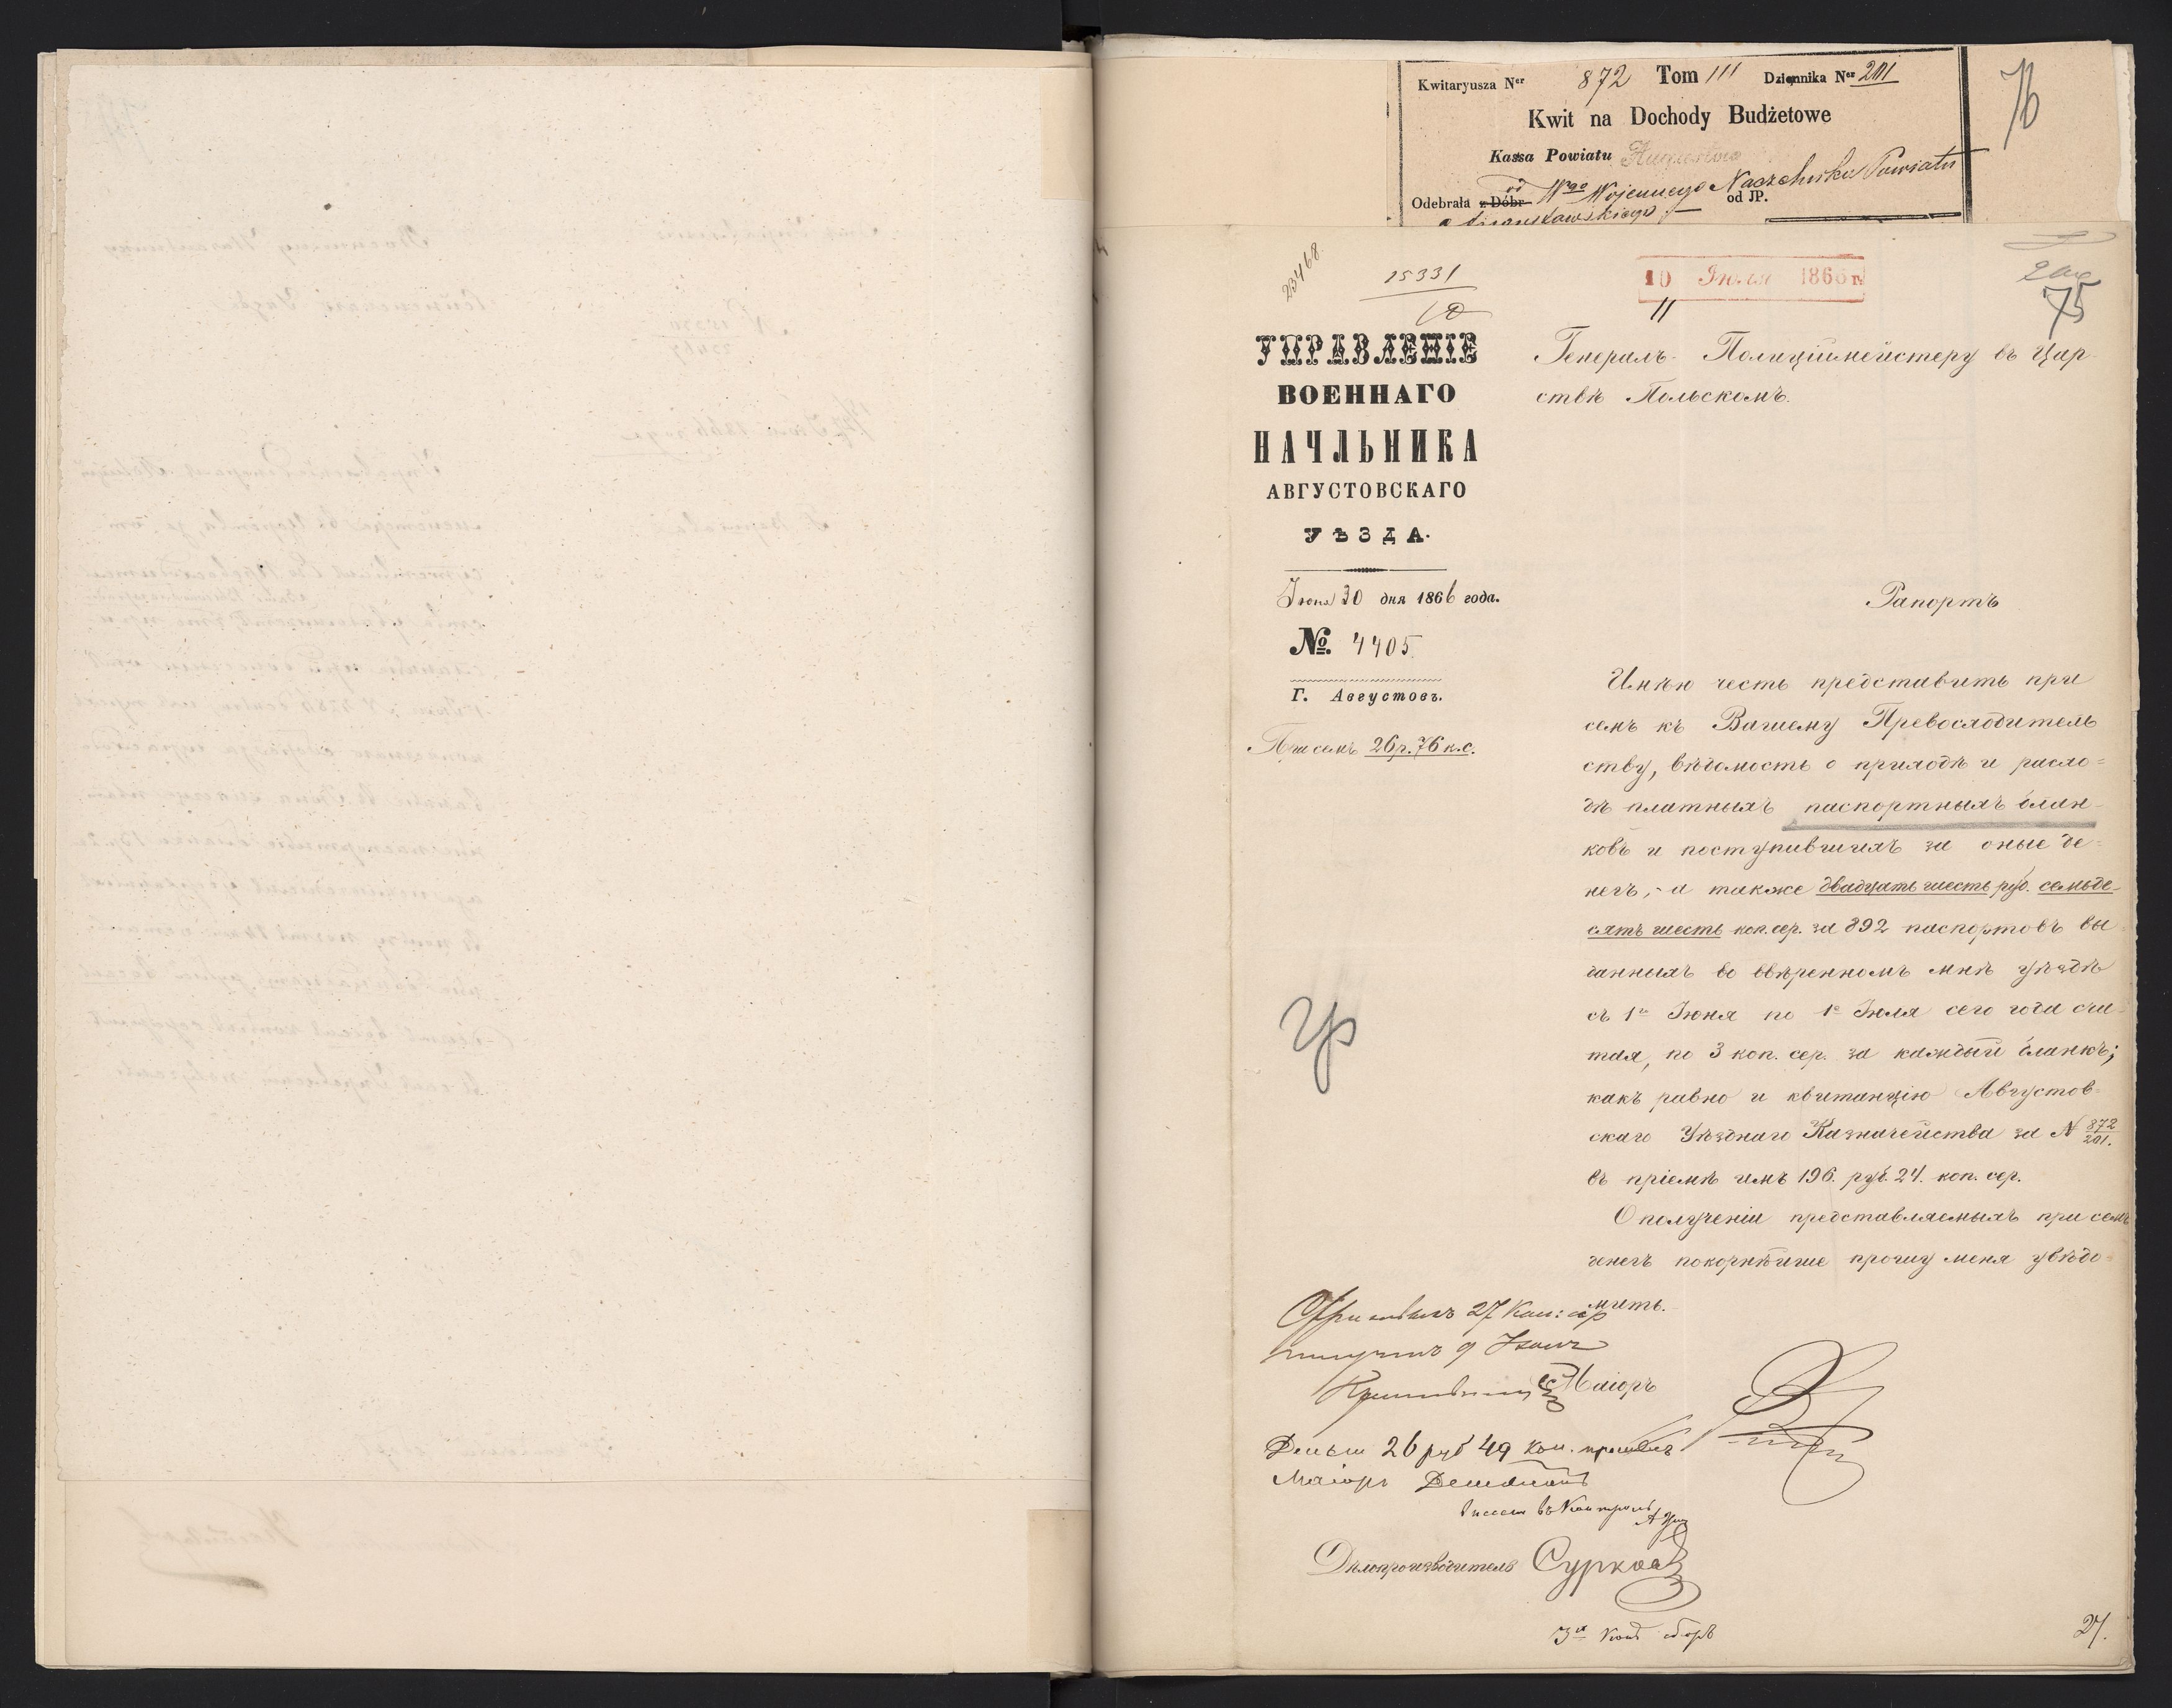 Kwitaryusza Ner 872 Tom III Dziennika Ner 201
76
Kwit na Dochody Budżetowe
Kassa Powiatu
od Wgo Wojennego Naczelnika Powiatu
Odebrała z Dóbr od JP.
23468
15331
10 Июля 1866 г.
11
75
УПРАВЛЕНІЕ
ВОЕННАГО
НАЧЛЬНИКА
АВГУСТОВСКАГО
УѢЗДА.
Іюня 30 дня 1866 года.
№ 4405.
Г. Августовъ.
При семъ 26 р. 76 к. с.
Генералъ-Полиціймейстеру въ Цар-
ствѣ Польскомъ.
Рапортъ
Имѣю честь представить при
семъ къ Вашему Превосходитель
ству, вѣдомость о приходѣ и расхо=
дѣ платныхъ паспортныхъ блан-
ковъ и поступившихъ за оные де=
негъ, а также двадцать шесть руб. семьде-
сятъ шесть коп. сер. за 892 паспортовъ вы
данныхъ во ввѣренномъ мнѣ уѣздѣ
съ 1го Іюня по 1е Іюля сего года счи-
тая, по 3 коп. сер. за каждый бланкъ;
какъ равно и квитанцію Августов-
скаго Уѣзднаго Казначейства за N 872/201.
въ пріемѣ имъ 196. руб. 24. коп. сер.
О полученіи представляемыхъ при семъ
денегъ покорнѣйше прошу меня увѣдо=
мить.
27 Коп: сер
получилъ 9 Іюля
Маіоръ
Деньги 26 руб 49 коп. принялъ
Маіоръ
Дѣлопроизводитель Сурковъ
27.